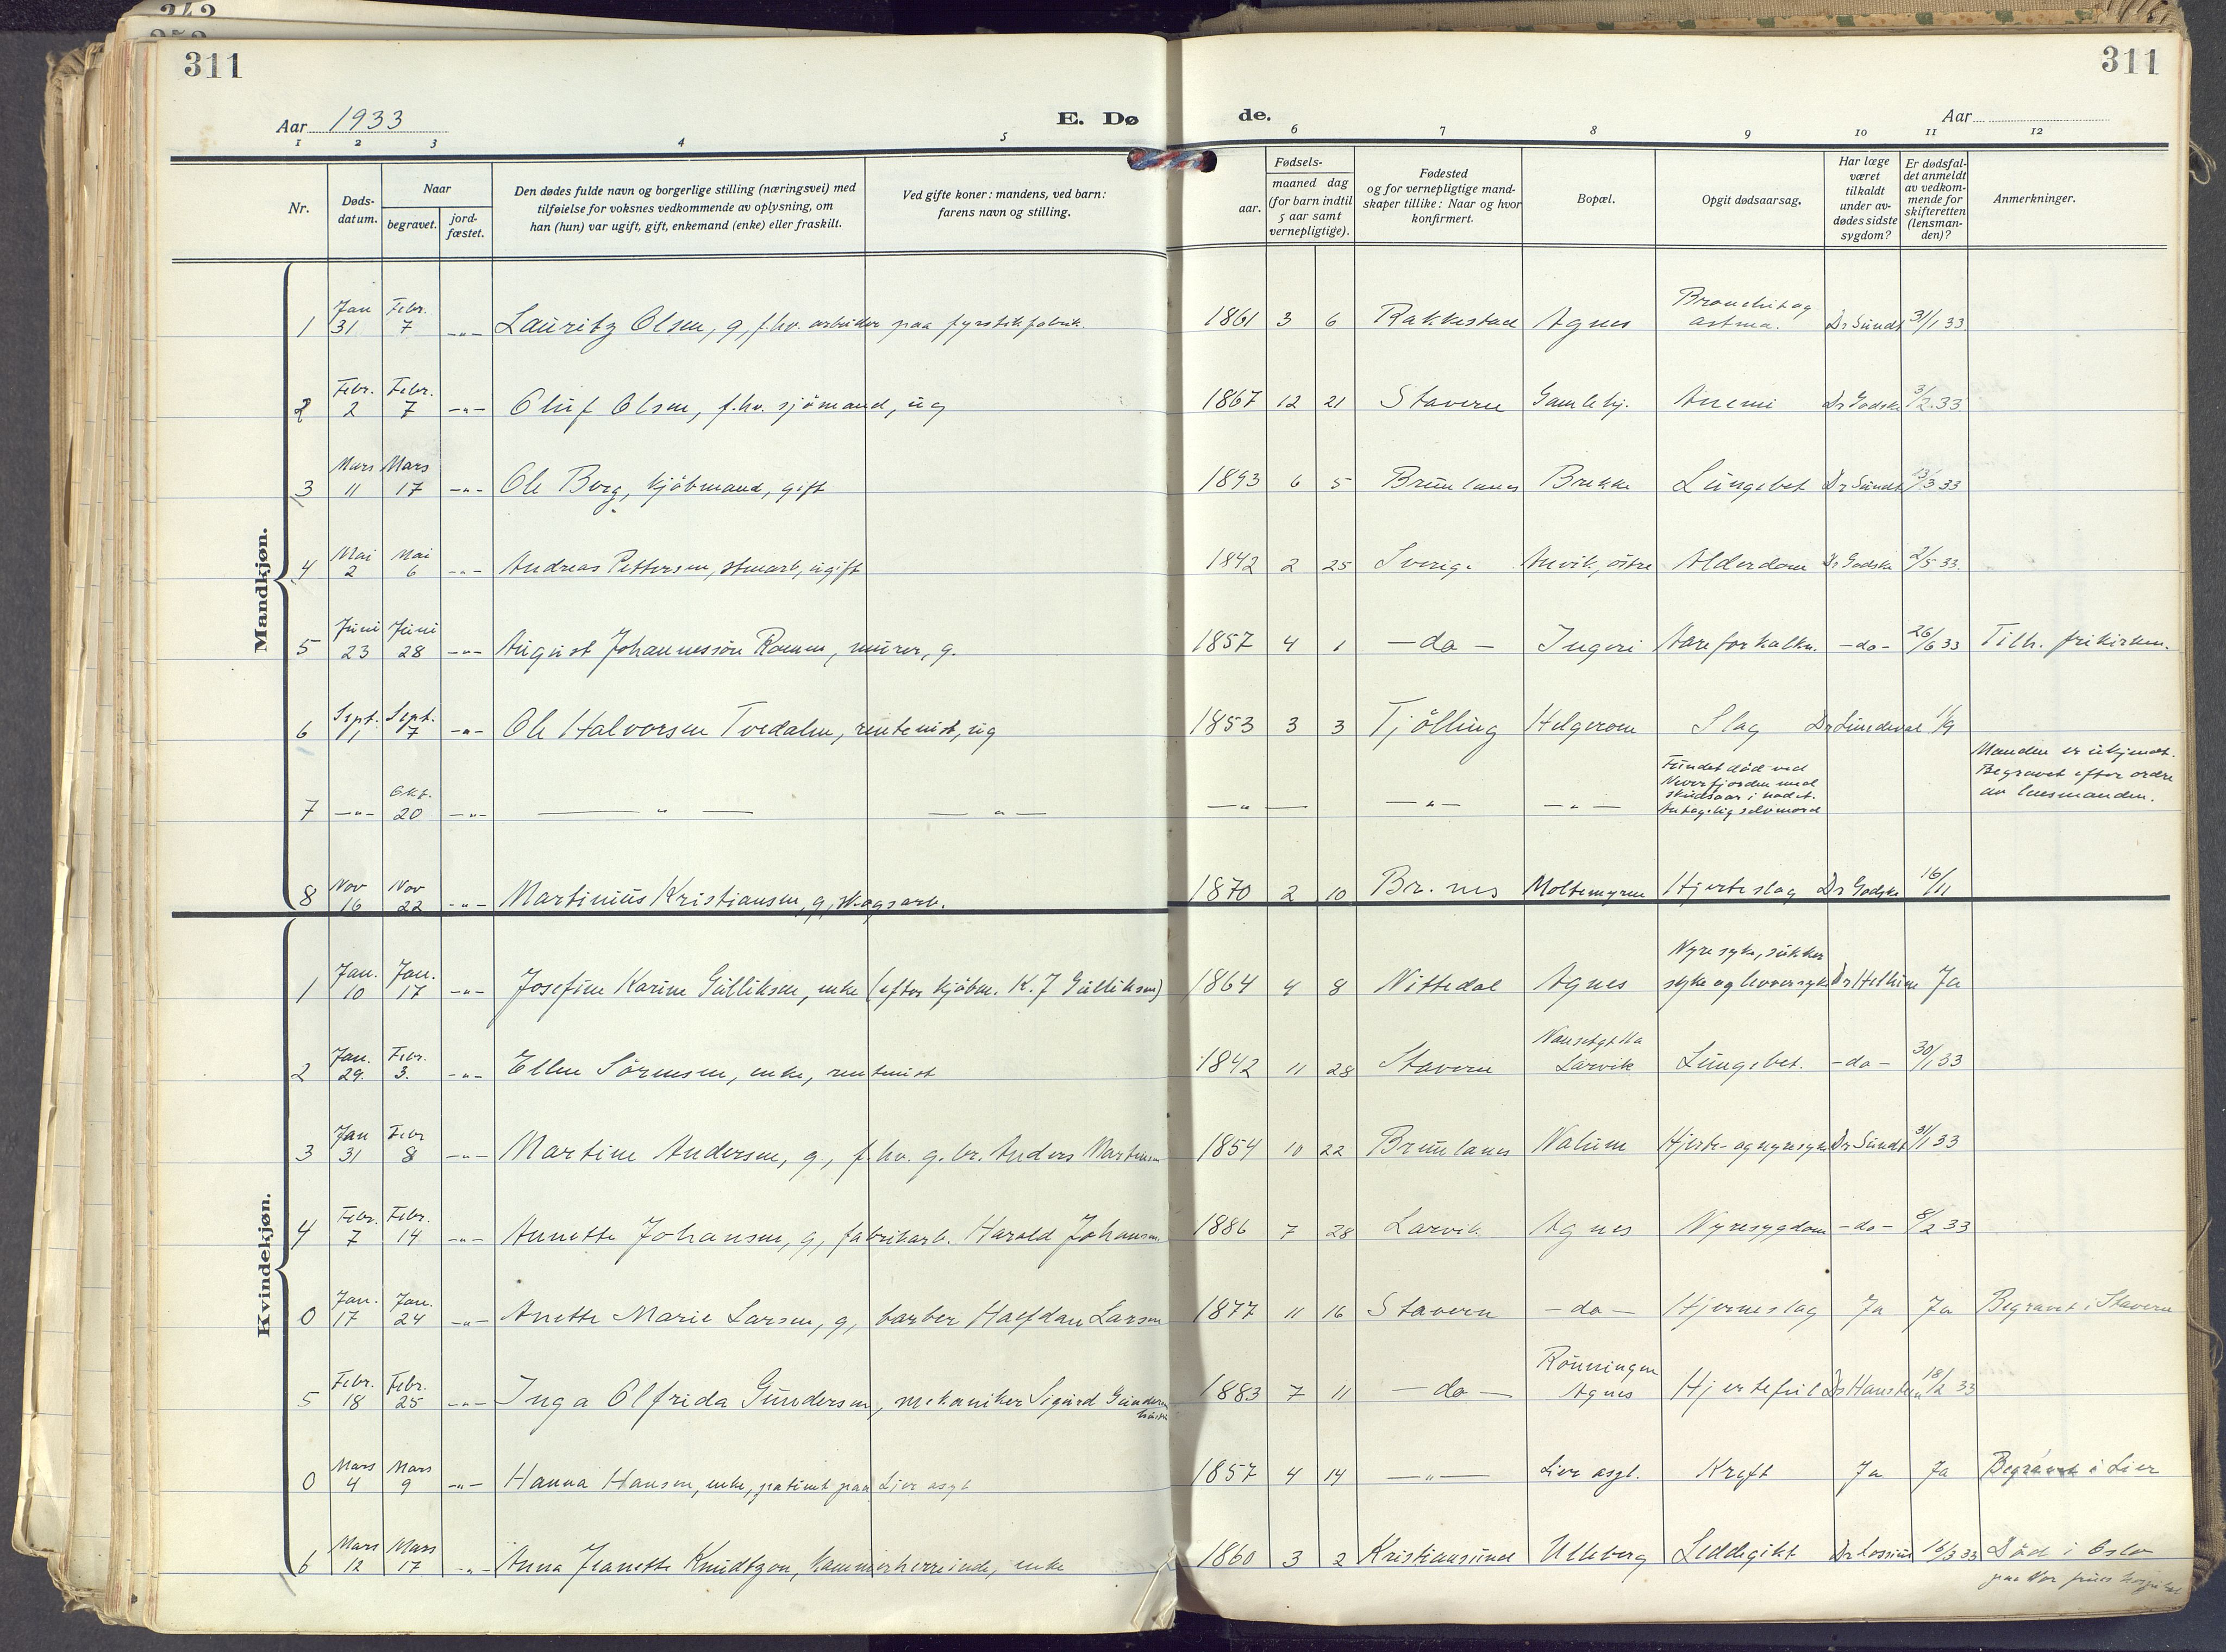 342
311
311
Aar 1933
E. Dø
de.
Aar
1 2 3 4 5 6 7 8 9 10 11 12
Nr.
Døds-
datum.
Naar
begravet.
jord-
fæstet.
Den dødes fulde navn og borgerlige stilling (næringsvei) med
tilføielse for voksnes vedkommende av oplysning, om
han (hun) var ugift, gift, enkemand (enke) eller fraskilt.
Ved gifte koner: mandens, ved barn:
farens navn og stilling.
Fødsels-
aar.
maaned dag
(for barn indtil
5 aar samt
vernepligtige).
Fødested
og for vernepligtige mand-
skaper tillike: Naar og hvor
konfirmert.
Bopæl.
Opgit dødsaarsag.
Har læge
været
tilkaldt
under av-
dødes sidste
sygdom?
Er dødsfal-
det anmeldt
av vedkom-
mende for
skifteretten
(lensman-
den)?
Anmerkninger.
Mandkjøn.
Jan Febr. Bronchit og
1 31 7 -"- Lauritz Olsen, g, f.hv. arbeider paa fyrstikfabrik. 1861 3 6 Rakkestad Agnes astma. Dr Sundt 31/1 33
Febr. Febr.
2 2 7 -"- Oluf Olsen, f.hv. sjömand, ug 1867 12 21 Stavern Gamlehj. Anemi Dr Godske 3/2 33
Mars Mars
3 11 17 -"- Ole Berg, kjöbmand, gift 1893 6 5 Brunlanes Brekke Lungebet Dr Sundt 13/3 33
Mai Mai
4 2 6 -"- Andreas Pettersen, stenarb, ugift 1842 2 25 Sverige Anvik, östre Alderdom Dr Godske 2/5 33.
Juni Juni
5 23 28 -"- August Johannesson Ramm, murer, g. 1857 4 1 - do - Ingeri Aareforkalkn. - do - 26/6 33 Tilh. frikirken.
Sept. Sept.
6 1 7 -"- Ole Halvorsen Tvedalen, rentenist, ug 1853 3 3 Tjölling Helgeroen Slag Dr Lundevall 1/9
Okt. Fundet död ved Manden er ukjendt.
Neverfjorden med Begravet efter ordre
skudsaar i hodet. av lensmanden.
7 -"- 20 -"- - " - - " - - " - - " - - " - Antagelig selvmord
Nov Nov
8 16 22 -"- Martinius Kristiansen, g, skogsarb. 1870 2 10 Br.nes Moltemyren Hjerteslag Dr Godske 16/11
Kvindekjøn.
Jan. Jan. Nyresyke, sukker
1 10 17 -"- Josefine Karine Gulliksen, enke (efter kjöbm. K. J Gulliksen) 1864 4 8 Nittedal Agnes syke og leversyke Ja
Jan. Febr. Nansetgt 11a
2 29. 3. -"- Ellen Sörensen, enke, rentenist 1842 11 28 Stavern Larvik Lungebet. - do - 30/1 33
Jan Febr
3 31 8 -"- Martine Andersen, g., f. hv. g.br. Anders Martinsen 1854 10 22 Brunlanes Nalum Hjerte- og nyresyke Dr Sundt 31/1 33
Febr. Febr.
4 7 14 -"- Annette Johansen, g, fabrikarb. Harald Johansen 1886 7 28 Larvik Agnes Nyresygdom - do - 8/2 33
Jan. Jan.
0 17 24 -"- Anette Marie Larsen, g, barber Halfdan Larsen 1877 11 16 Stavern - do - Hjerneslag Ja Ja Begravet i Stavern
Febr. Febr. Rönningen
5 18 25 -"- Inga Olfrida Gundersen, mekaniker Sigurd Gundersens hustru 1883 7 11 - do - Agnes Hjertefeil Dr Hansteen 18/2 33
Mars Mars
0 4 9 -"- Hanna Hansen, enke, patient paa Lier asyl 1857 4 14 - " - Lier asyl. Kreft Ja Ja Begravet i Lier
Mars Mars
6 12 17 -"- Anna Jeanette Knudtzon, kammerherreinde, enke 1860 3 2 Kristiansund Ulleberg Leddegikt Dr Lossius 16/3 33 Död i Oslo
paa Vor frues hospital